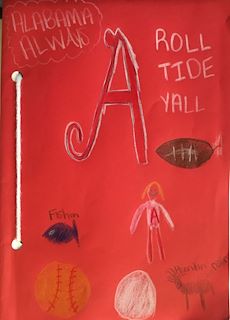 ALABAMA
ALWAYS
A
ROLL
TIDE
YALL
Fishin
A